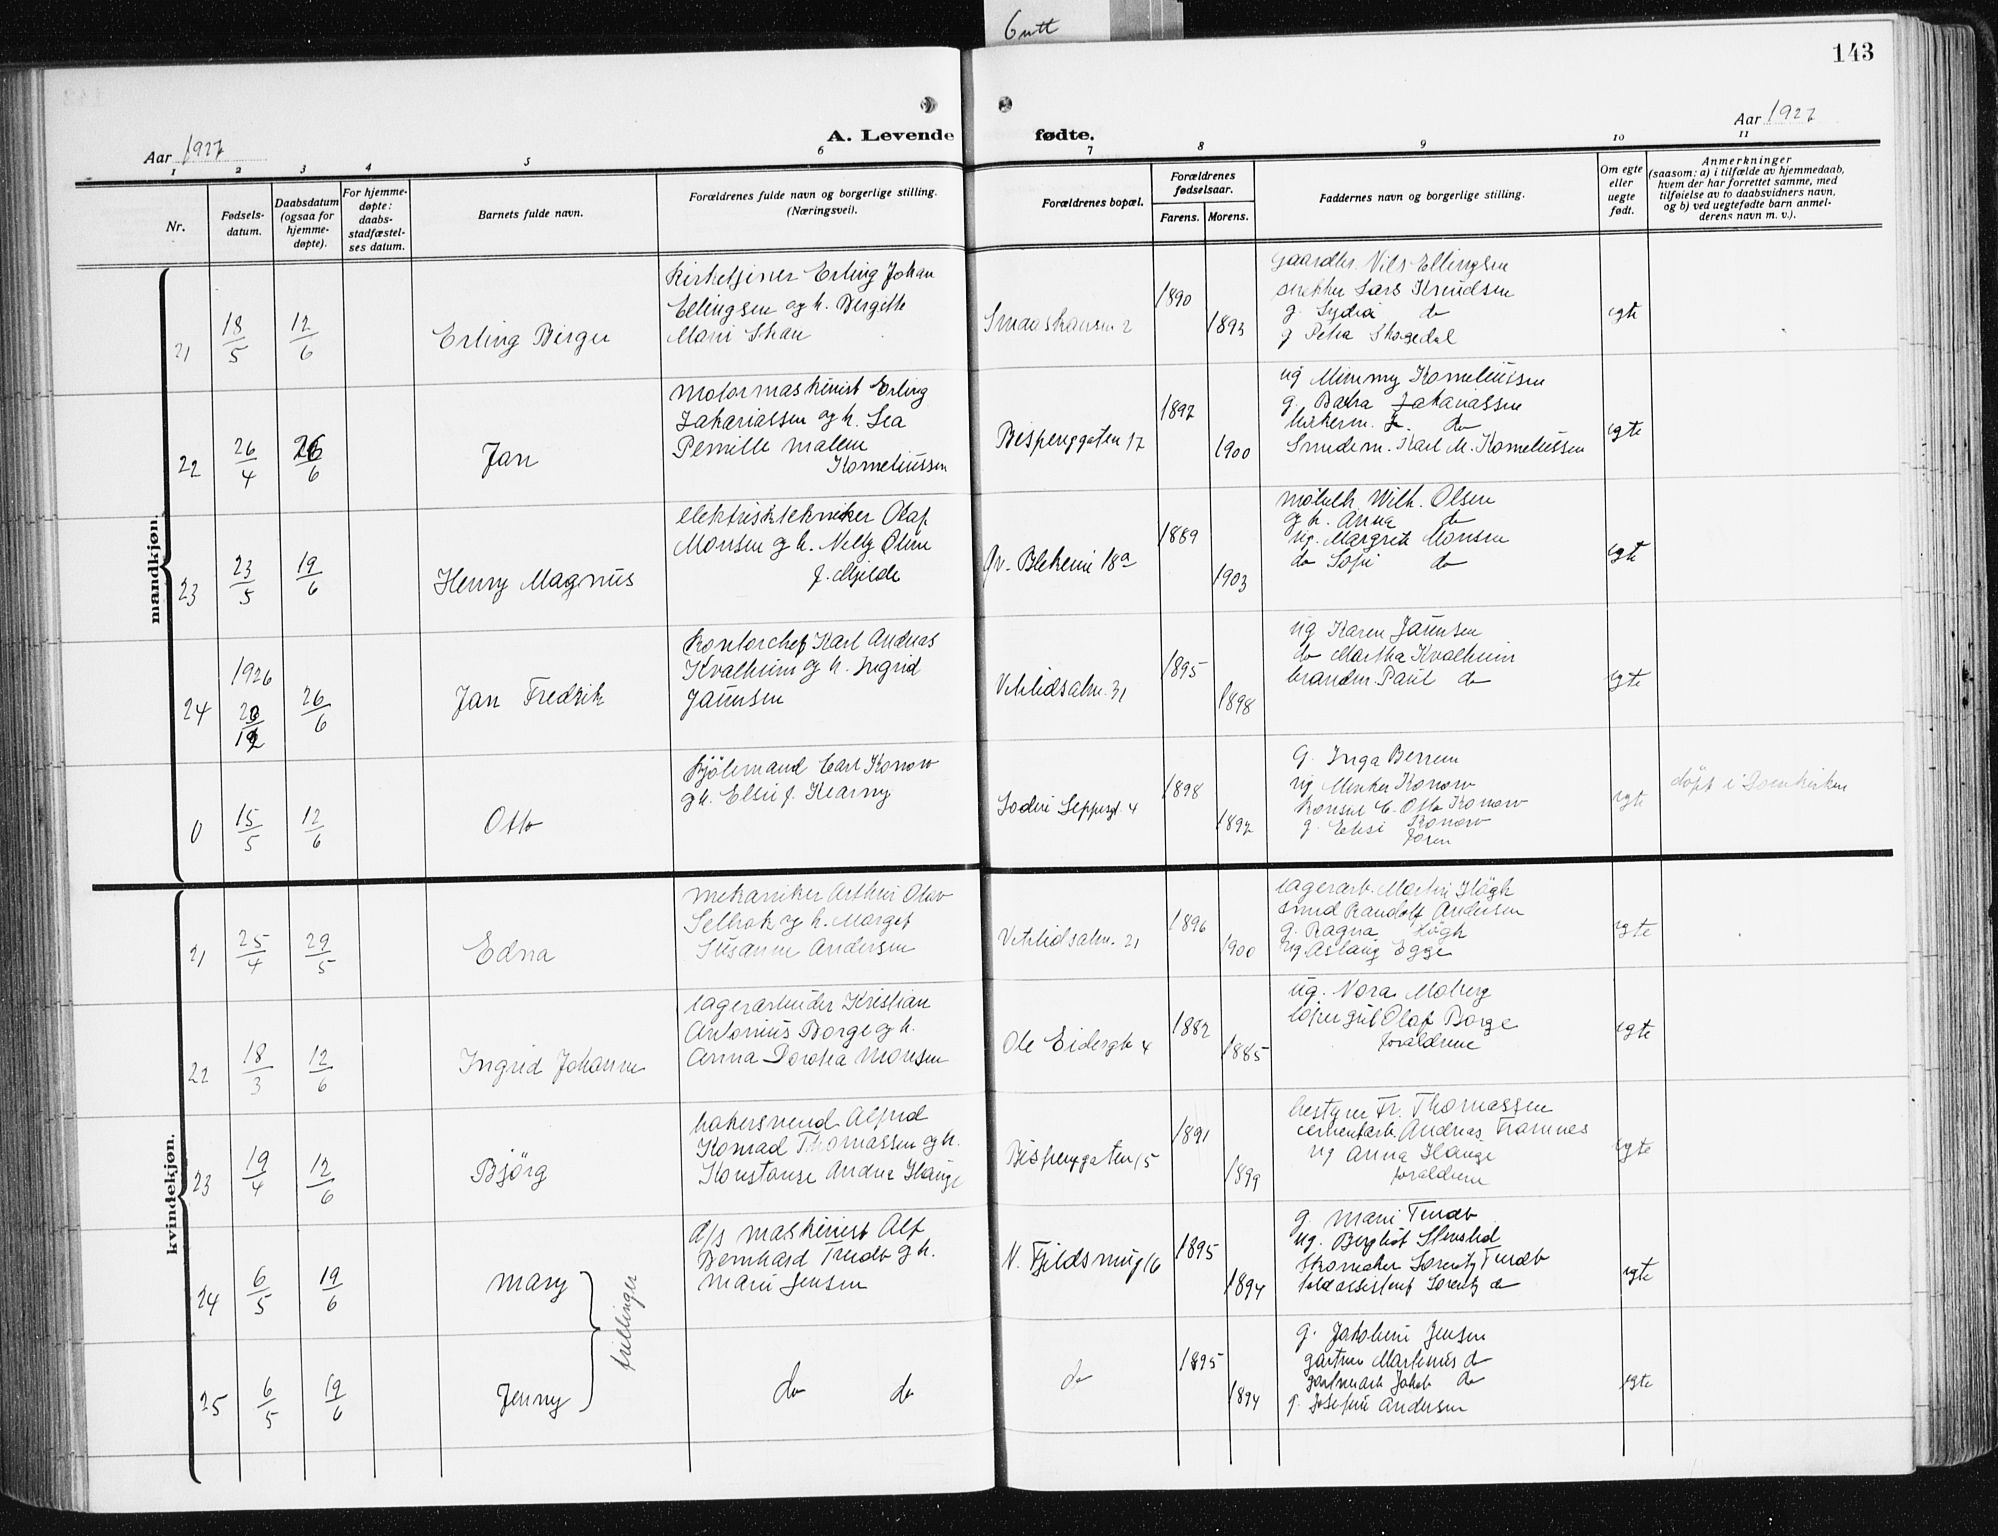 Gutt
143
Aar 1927
A. Levende fødte.
Aar 1927
1 2 3 4 5 6 7 8 9 10 11
Nr.
Fødsels-
datum.
Daabsdatum
(ogsaa for
hjemme-
døpte).
For hjemme-
døpte:
daabs-
stadfæstel-
ses datum.
Barnets fulde navn.
Forældrenes fulde navn og borgerlige stilling.
(Næringsvei).
Forældrenes bopæl.
Forældrenes
fødselsaar.
Farens. Morens.
Faddernes navn og borgerlige stilling.
Om egte
eller
uegte
født.
Anmerkninger
(saasom: a) i tilfælde av hjemmedaab,
hvem der har forrettet samme, med
tilføielse av to daabsvidners navn,
og b) ved uegtefødte barn anmel-
derens navn m. v.).
mandkjøn.
21
18/5
12/6
Erling Birger
Kirketjener Erling Johan
Ellingsen og h. Bergith
Marie Skau
1890
1893
Nils Ellingsen
snekker Lars Knudsen
g. Lydia do
g Petra Skagedal
egte
22
26/4
26/6
Jan
Motormaskinist Erling
Zakariassen og h. Lea
Pernille Malene
Korneliussen
Bispenggaten 17
1892
1900
ug Mimmy Korneliussen
g. Zakariassen
do
Smedm. Karl M. Korneliussen
egte
23
23/5
19/6
Henry Magnus
elektrisktekniker Olaf
Monsen og h. Nelly Oline
f. Mjelde
Øv. Blekevei 18a
1889
1903
Wilh. Olsen
og h. Anna do
ug. Margrete Monsen
do Sofie do
egte
24
1926
20/12
26/6
Jan Fredrik
Kontorchef Karl Andreas
Kvalheim og h. Ingrid
Jaunsen
Vetrlidsalm. 31
1895
1898
ug Karen Jaunsen
do Martha Kvalheim
brandm. Paul do
egte
0
15/5
12/6
Otto
Kjøbmand Carl Konow
og h. Elsie f. Kearny
4
1898
1892
g. Inga
ug Konow
Konsul C. Otto Konow
g. Konow
egte
døpt i Domkirken
kvindekjøn.
21
25/4
29/5
Edna
mekaniker Arthur Olav
og h. Marget
Susanne Andersen
Vetrlidsalm. 21
1896
1900
lagerarb. Martin Høgh
smed Randolf Andersen
g. Ragna Høgh
ug. Aslaug Egge
egte
22
18/3
12/6
Ingrid Johanne
lagerarbeider Kristian
Antonius Borge og h.
Anna Dorthea Monsen
Ole 4
1882
1885
ug. Nora Moberg
løpergut Olaf Borge
forældrene
egte
23
19/4
12/6
Bjørg
bakersvend Alfred
Konrad Thomassen og h.
Konstanse Andrea Hauge
Bispenggaten 15
1891
1899
bestyrer Fr. Thomassen
cementarb. Andreas Framnes
ug Anna Hauge
forældrene
egte
24
6/5
19/6
Mary
d/s maskinist Alf
Bernhard Tredt og h.
Marie Jensen
N. Fjeldsmug 16
1895
1894
g. Marie
ug. Bergliot
skomaker Lorentz
toldassistent Lorentz do
egte
tvillinger
25
6/5
19/6
Jenny
do do
do
1895
1894
g. Jakobine Jensen
gartner Martinius do
gartnerarb Jakob do
g. Josefine Andersen
egte